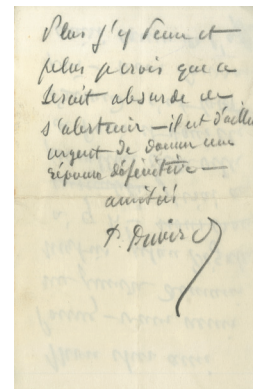 Plus j'y pense et
plus je crois que ce
serait absurde de
s'abstenir — il est d'ailleurs
urgent de donner une
réponse définitive —
amitiés
P.